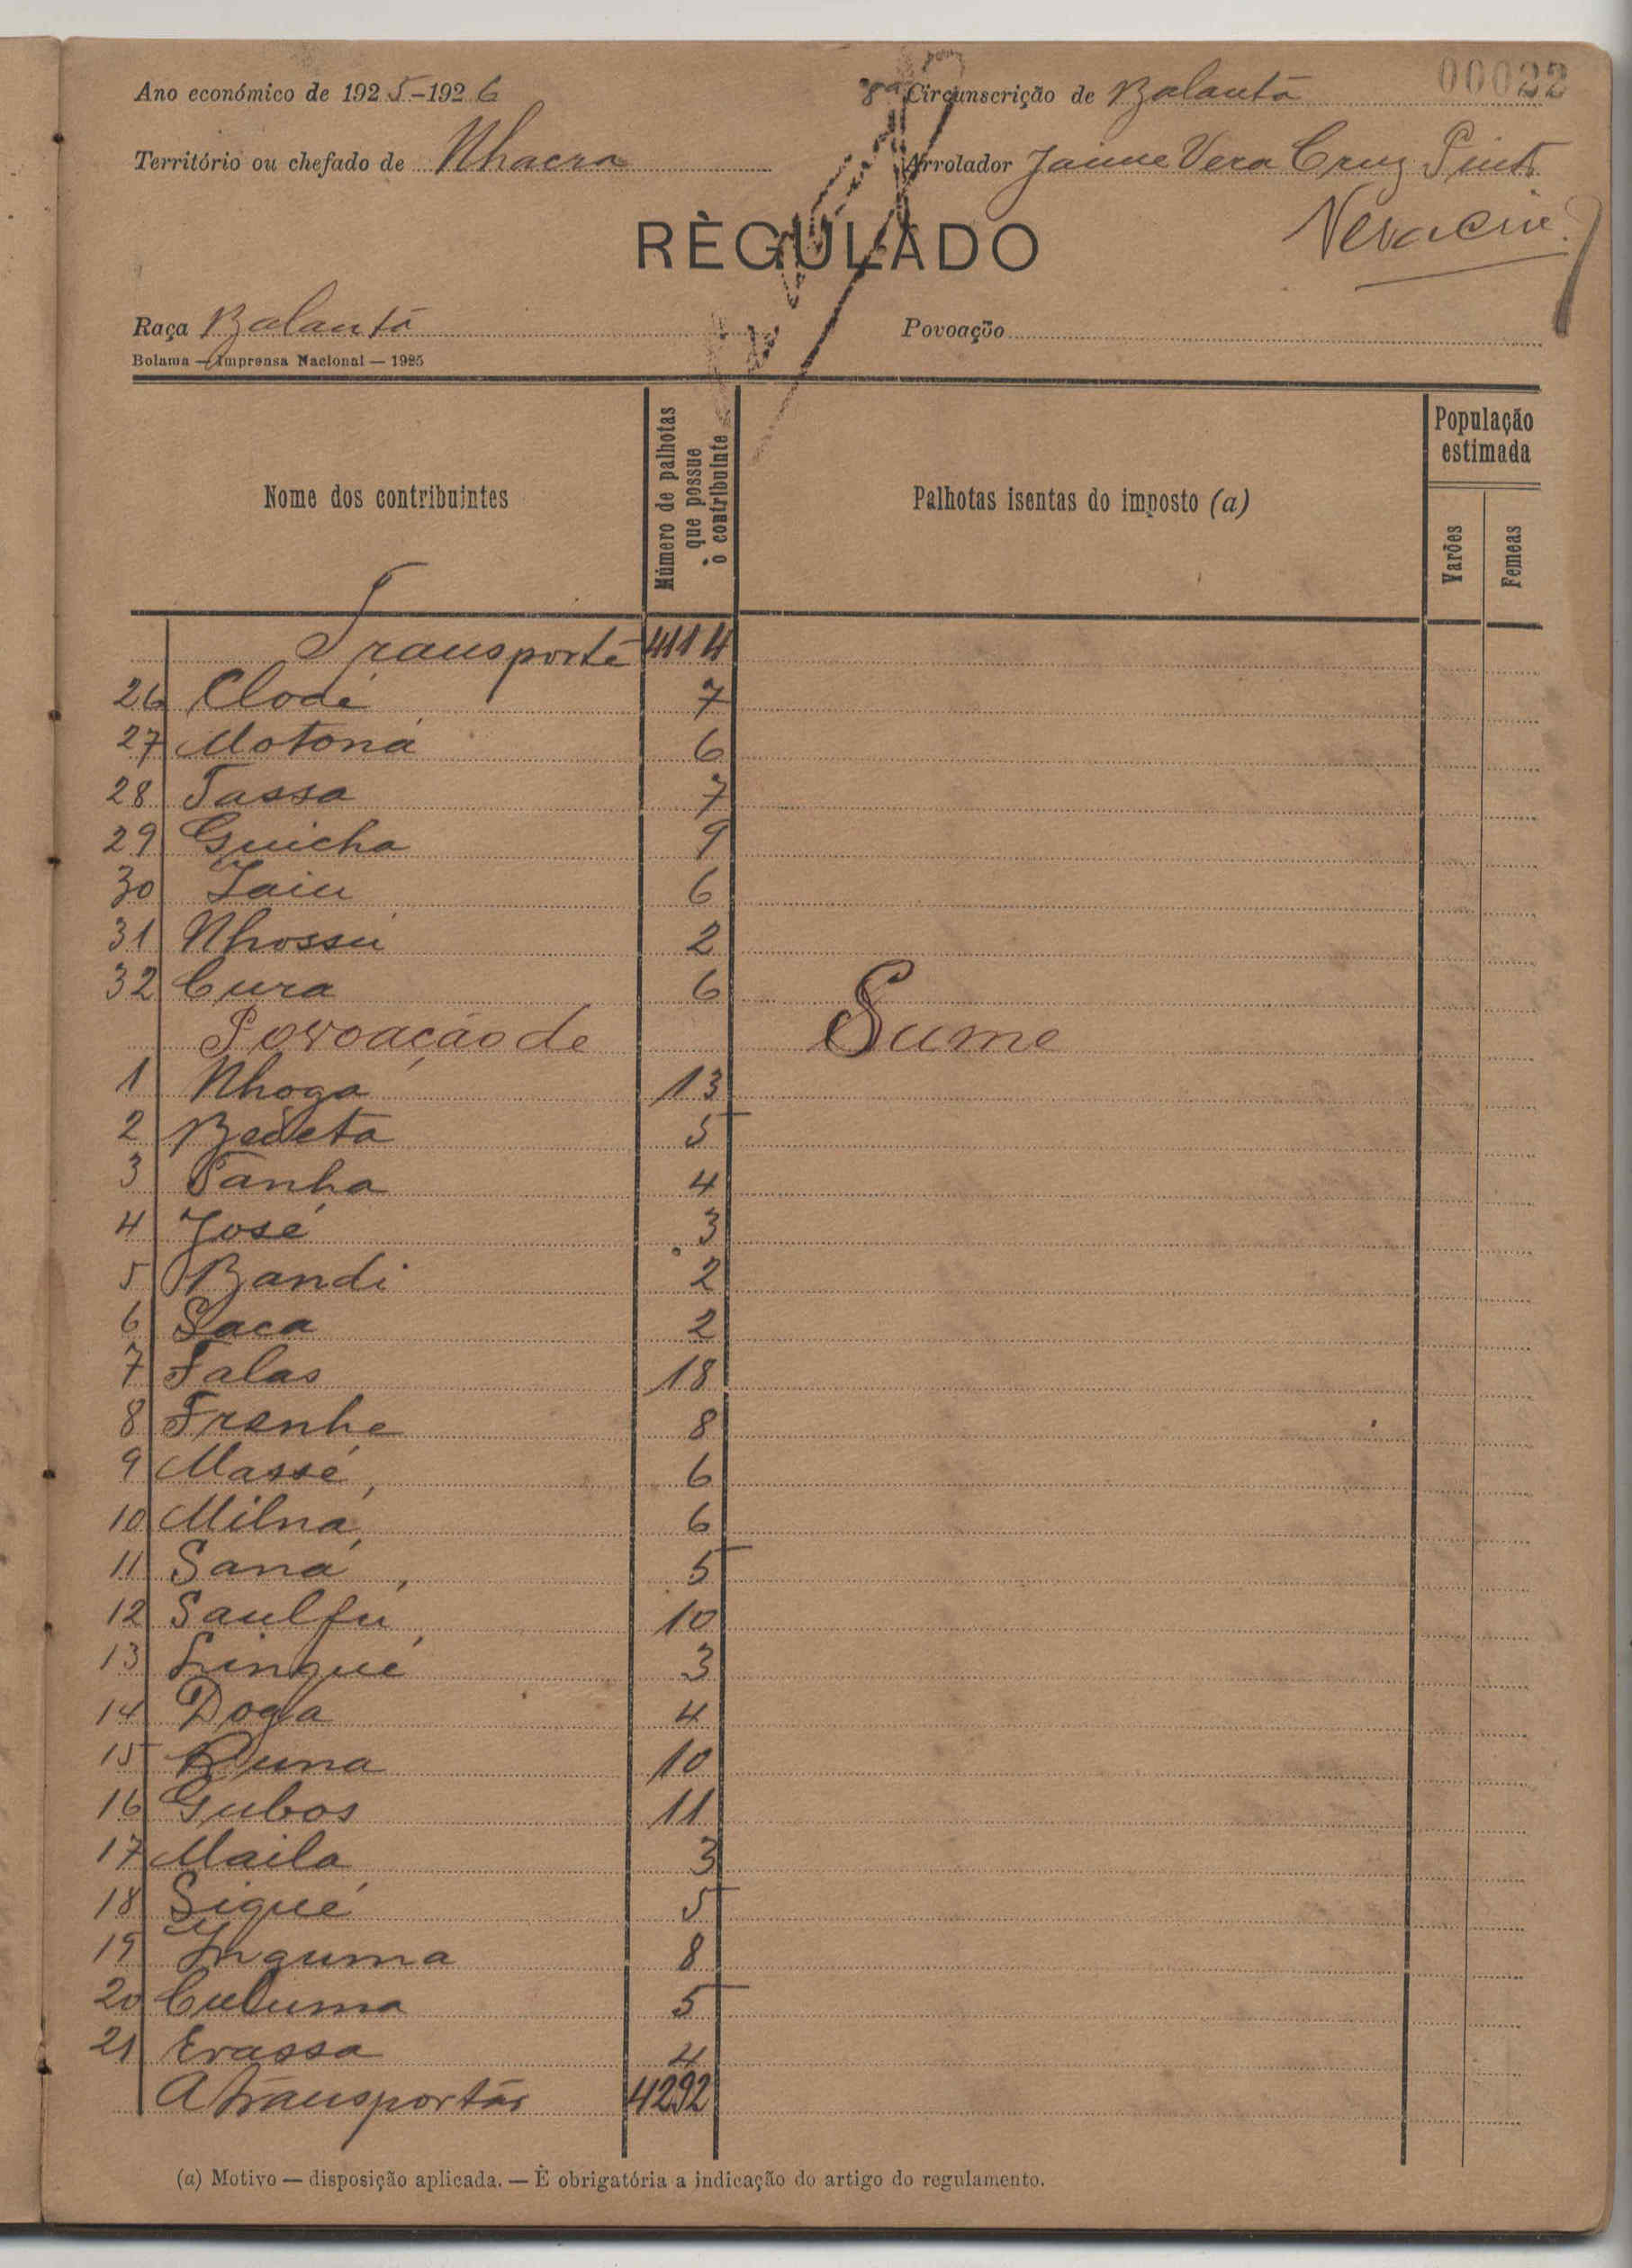 00022
Ano económico de 1925-1926 8ª Circunscrição de Balanta
Território ou chefado de Nhacra Arrolador Jaime Vera Cruz Pinto
RÈGULADO
Raça Balanta Povoação
Bolama — Imprensa Nacional — 1925
Nome dos contribuintes
Número de palhotas que possue o contribuinte
Palhotas isentas do imposto (a)
População estimada
Varões
Femeas
Transporte 4114
26 Clodé 7
27 Motoná 6
28 Tassa 7
29 Guicha 9
30 Iaiu 6
31 Nhossú 2
32 Cura 6
Povoação de Sume
1 Nhoga 13
2 5
3 Panha 4
4 José 3
5 Bandi 2
6 Saca 2
7 Falas 18
8 Frenhe 8
9 Massé 6
10 Milná 6
11 Saná 5
12 Saulfú 10
13 Lingué 3
14 Doga 4
15 10
16 Gubos 11
17 Maila 3
18 Sigué 5
19 Inguma 8
20 Culuma 5
21 Erassa 4
A transportar 4292
(a) Motivo — disposição aplicada. — È obrigatória a indicação do artigo do regulamento.